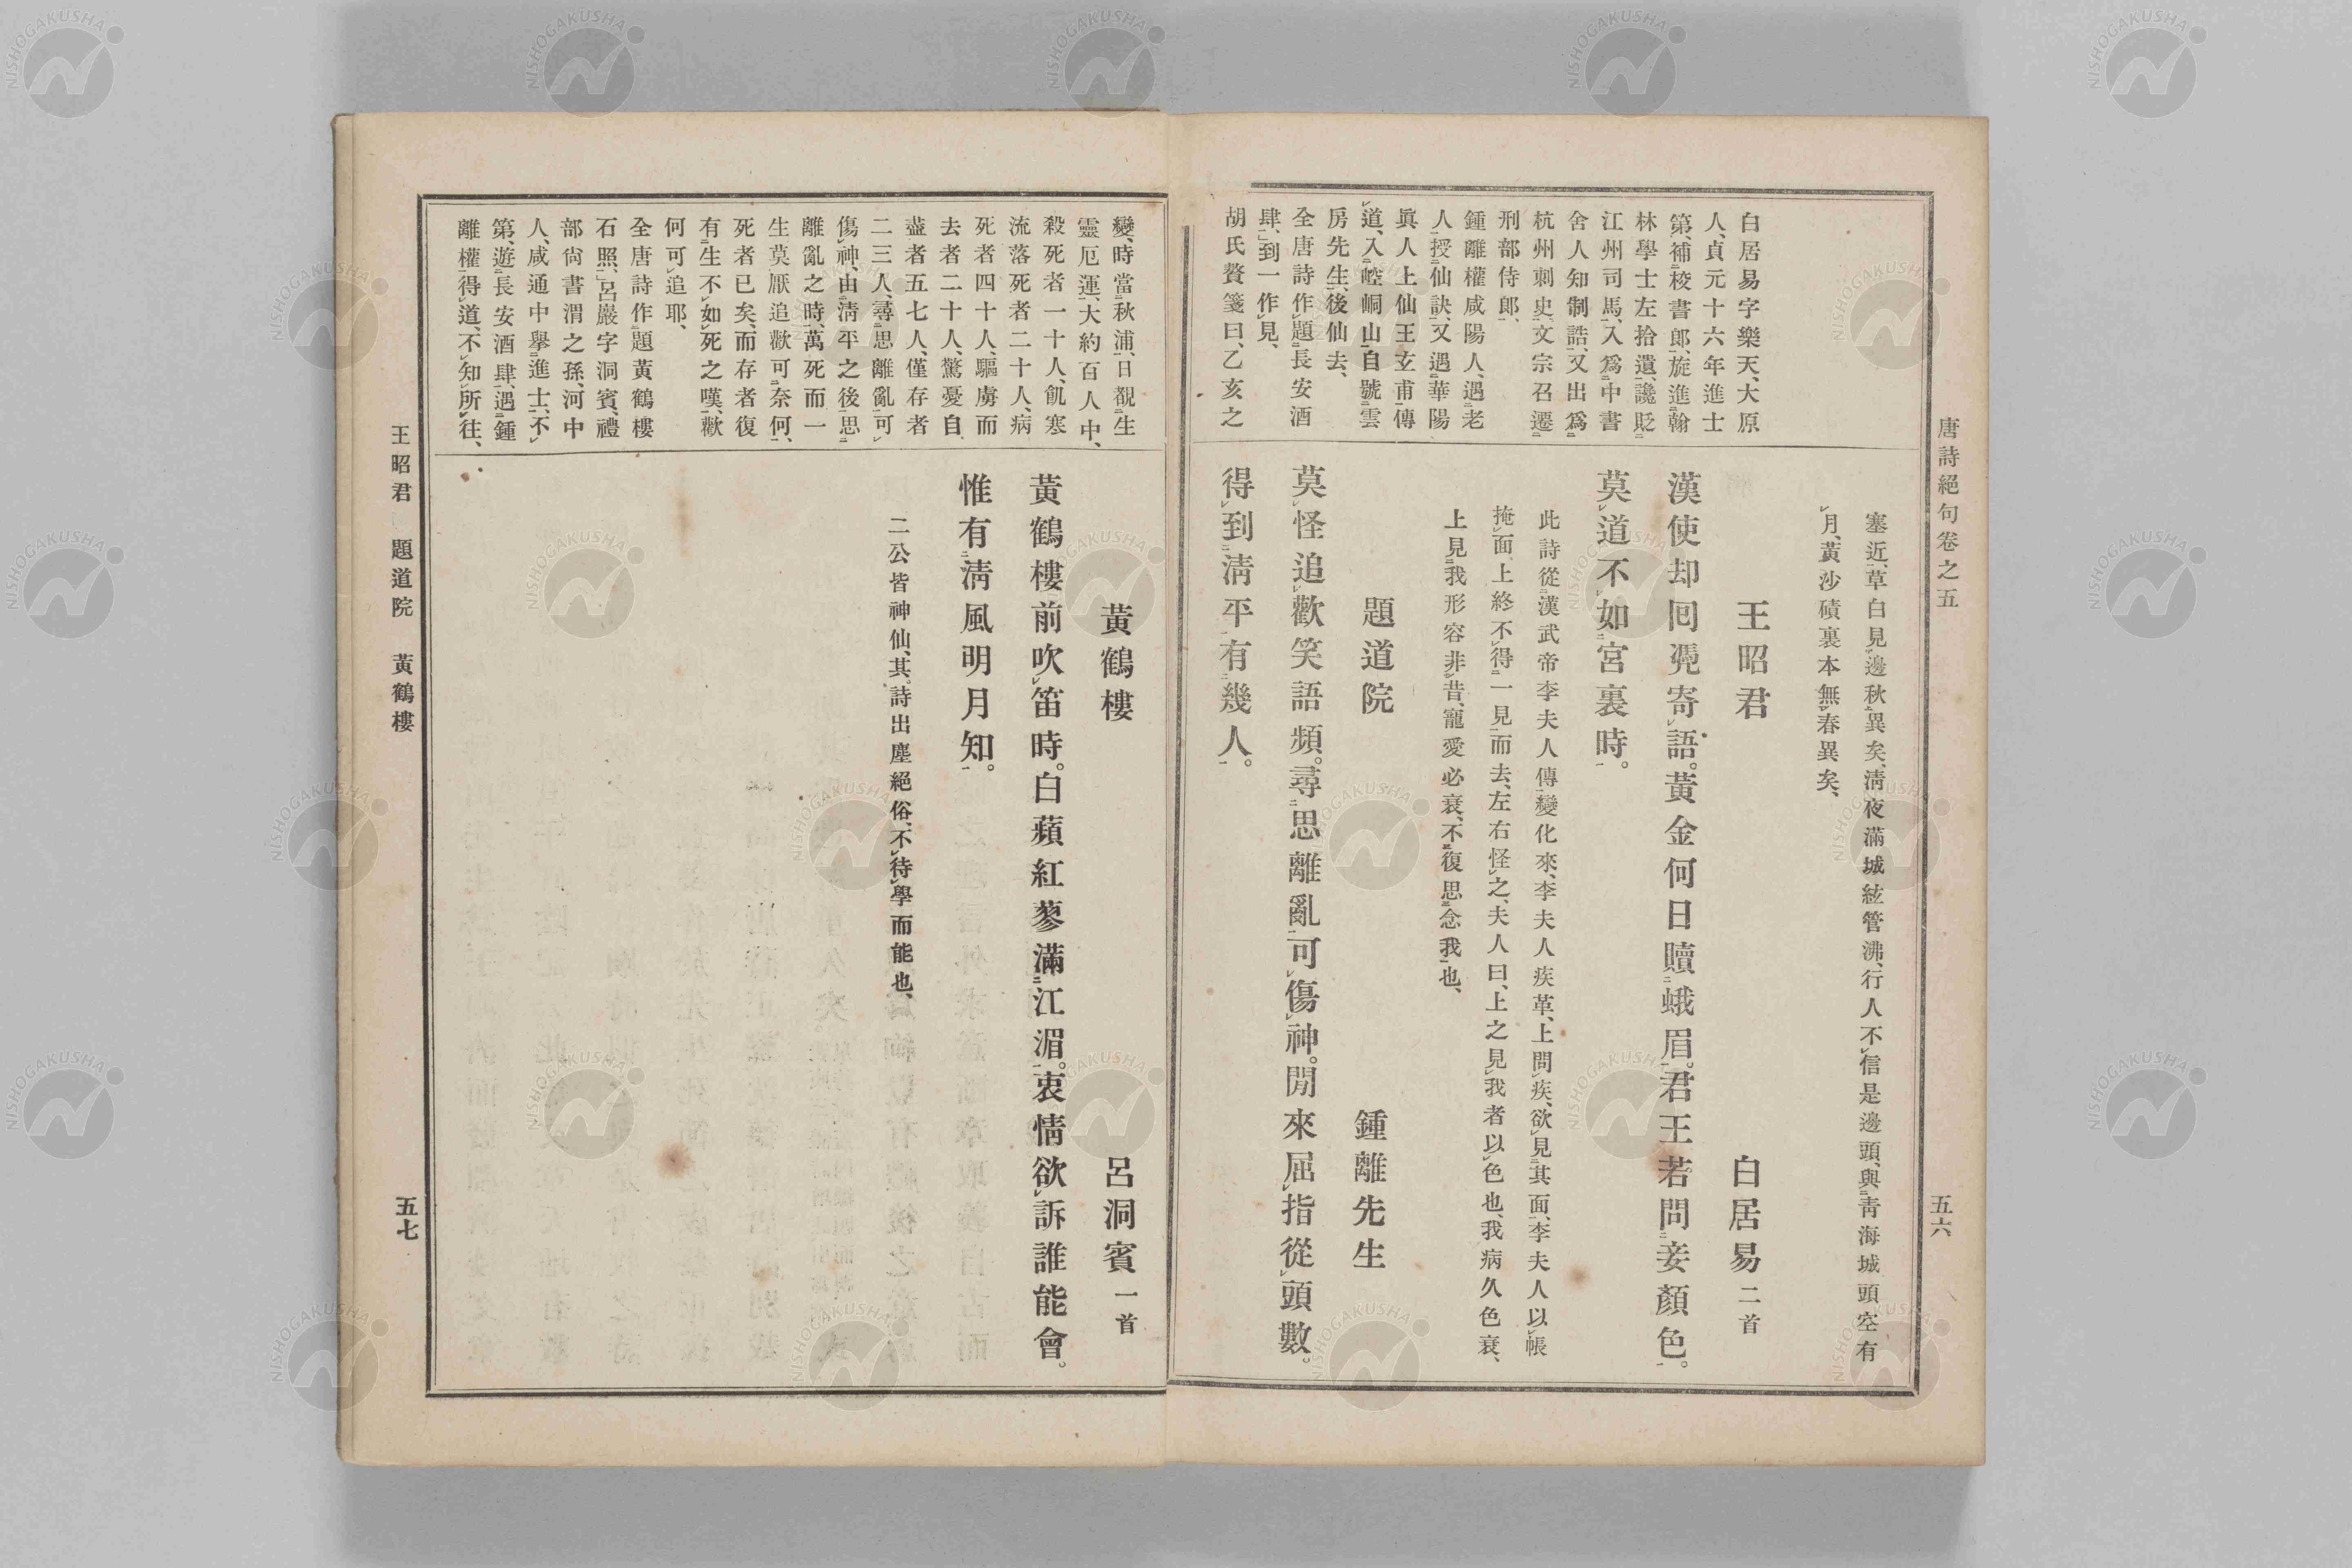 唐詩絕句卷之五
五六
白居易字樂天、大原
人、貞元十六年進士
第、補校書郎、旋進翰
林學士左拾遺、讒貶
江州司馬、入爲中書
舍人知制誥、又出爲
杭州刺史、文宗召遷
刑部侍郎、
鍾離權咸陽人、遇老
人、授仙訣、又遇華陽
眞人上仙王玄甫傳
道、入崆峒山、自號雲
房先生、後仙去、
全唐詩作題長安酒
肆、到一作見、
胡氏贅箋曰、乙亥之
塞近、草白見邊秋異矣、淸夜滿城絃管沸、行人不信是邊頭、與靑海城頭空有
月、黃沙磧裏本無春異矣、
王昭君 白居易 二首
漢使却囘凴寄語。黃金何日贖蛾眉。君王若問妾顏色。
莫道不如宮裏時。
此詩從漢武帝李夫人傳變化來、李夫人疾革、上問疾、欲見其面、李夫人以帳
掩面、上終不得一見而去、左右怪之、夫人曰、上之見我者以色也、我病久色衰、
上見我形容非昔、寵愛必衰、不復思念我也、
題道院 鍾離先生
莫怪追歡笑語頻。尋思離亂可傷神。閒來屈指從頭數。
得到淸平有幾人。
變、時當秋浦、日覩生
靈厄運、大約百人中、
殺死者一十人、飢寒
流落死者二十人、病
死者四十人、驅虜而
去者二十人、驚憂自
盡者五七人、僅存者
二三人、尋思離亂可
傷神、由淸平之後思
離亂之時、萬死而一
生莫厭追歡可奈何、
死者已矣、而存者復
有生不如死之嘆、歡
何可追耶、
全唐詩作題黃鶴樓
石照、呂巖字洞賓、禮
部尙書渭之孫、河中
人、咸通中擧進士、不
第、遊長安酒肆、遇鍾
離權得道、不知所往、
黃鶴樓 呂洞賓 一首
黃鶴樓前吹笛時。白蘋紅蓼滿江湄。衷情欲訴誰能會。
惟有淸風明月知。
二公皆神仙、其詩出塵絕俗、不待學而能也、
王昭君 題道院 黃鶴樓
五七
NISHOGAKUSHA